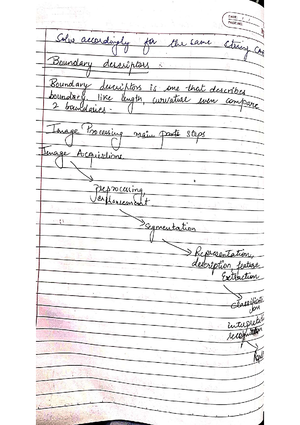 Solve accordingly for the same string
Boundary descriptors
Boundary descriptors is one that describes
boundary, like length, curvature even compare
2 boundaries.
Image Processing main parts steps
Image Acquisitions
Preprocessing
enhancement
Segmentation
Representation,
description feature
Extraction